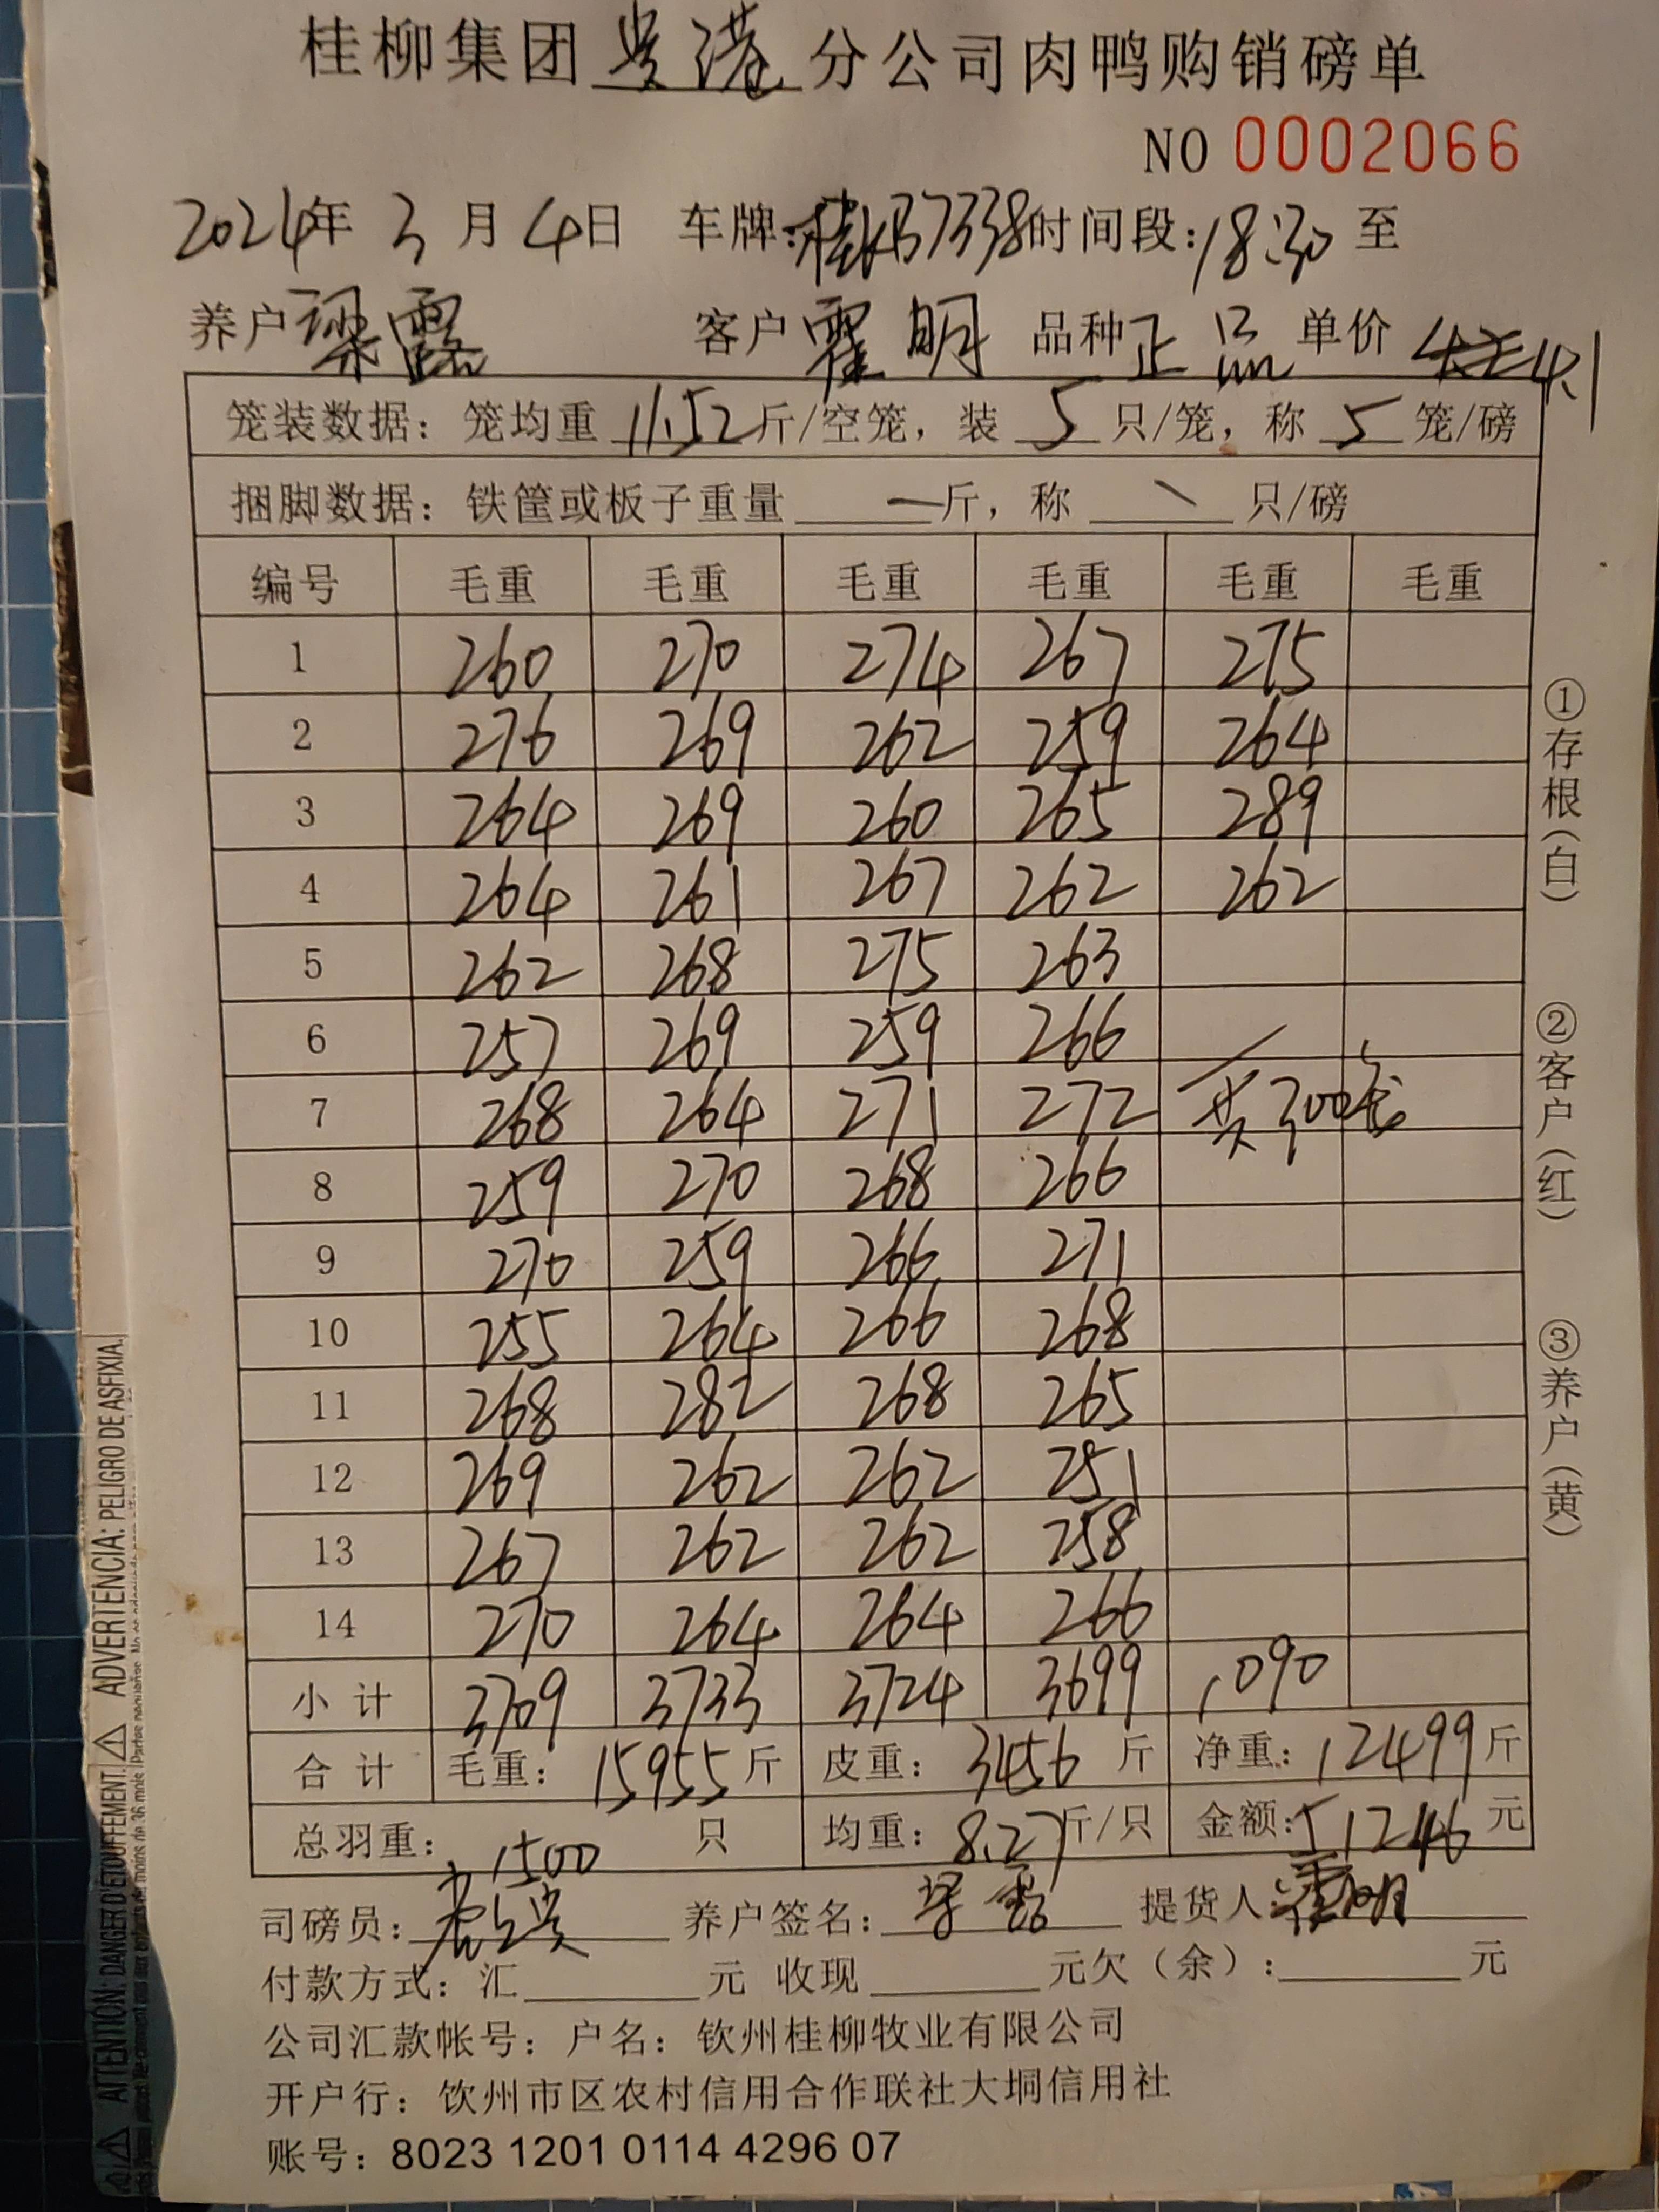 桂柳集团贵港分公司肉鸭购销磅单
NO 0002066
2024年3月4日 车牌:桂KB7338时间段:18:30至
养户梁露 客户霍明 品种正品 单价 4.1
笼装数据：笼均重11.52斤/空笼，装5只/笼，称5笼/磅
捆脚数据：铁筐或板子重量一斤，称\只/磅
编号 毛重 毛重 毛重 毛重 毛重 毛重
1 260 270 274 267 275
2 276 269 262 259 264
3 264 269 260 265 289
4 264 261 267 262 262
5 262 268 275 263
6 257 269 259 266
7 268 264 271 272 共300笼
8 259 270 268 266
9 270 259 266 271
10 255 264 266 268
11 268 282 268 265
12 269 262 262 251
13 267 262 262 258
14 270 264 264 266
小计 3709 3733 3724 3699 1090
合计 毛重：15955斤 皮重：3456斤 净重：12499斤
总羽重：1500只 均重：8.27斤/只 金额:51246元
司磅员： 养户签名：梁露 提货人:霍明
付款方式：汇 元 收现 元欠（余）: 元
公司汇款帐号：户名：钦州桂柳牧业有限公司
开户行：钦州市区农村信用合作联社大垌信用社
账号：8023 1201 0114 4296 07
①存根(白)
②客户(红)
③养户(黄)
ATTENTION: DANGER D'ÉTOUFFEMENT. ADVERTENCIA: PELIGRO DE ASFIXIA.